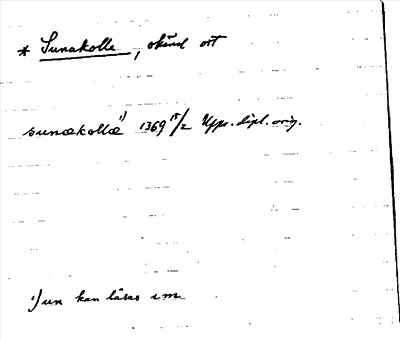 * Sunakolle, okänd ort
sunækollæ¹⁾ 1369 15/2 Upps. dipl. orig.
¹⁾ un kan läsas im